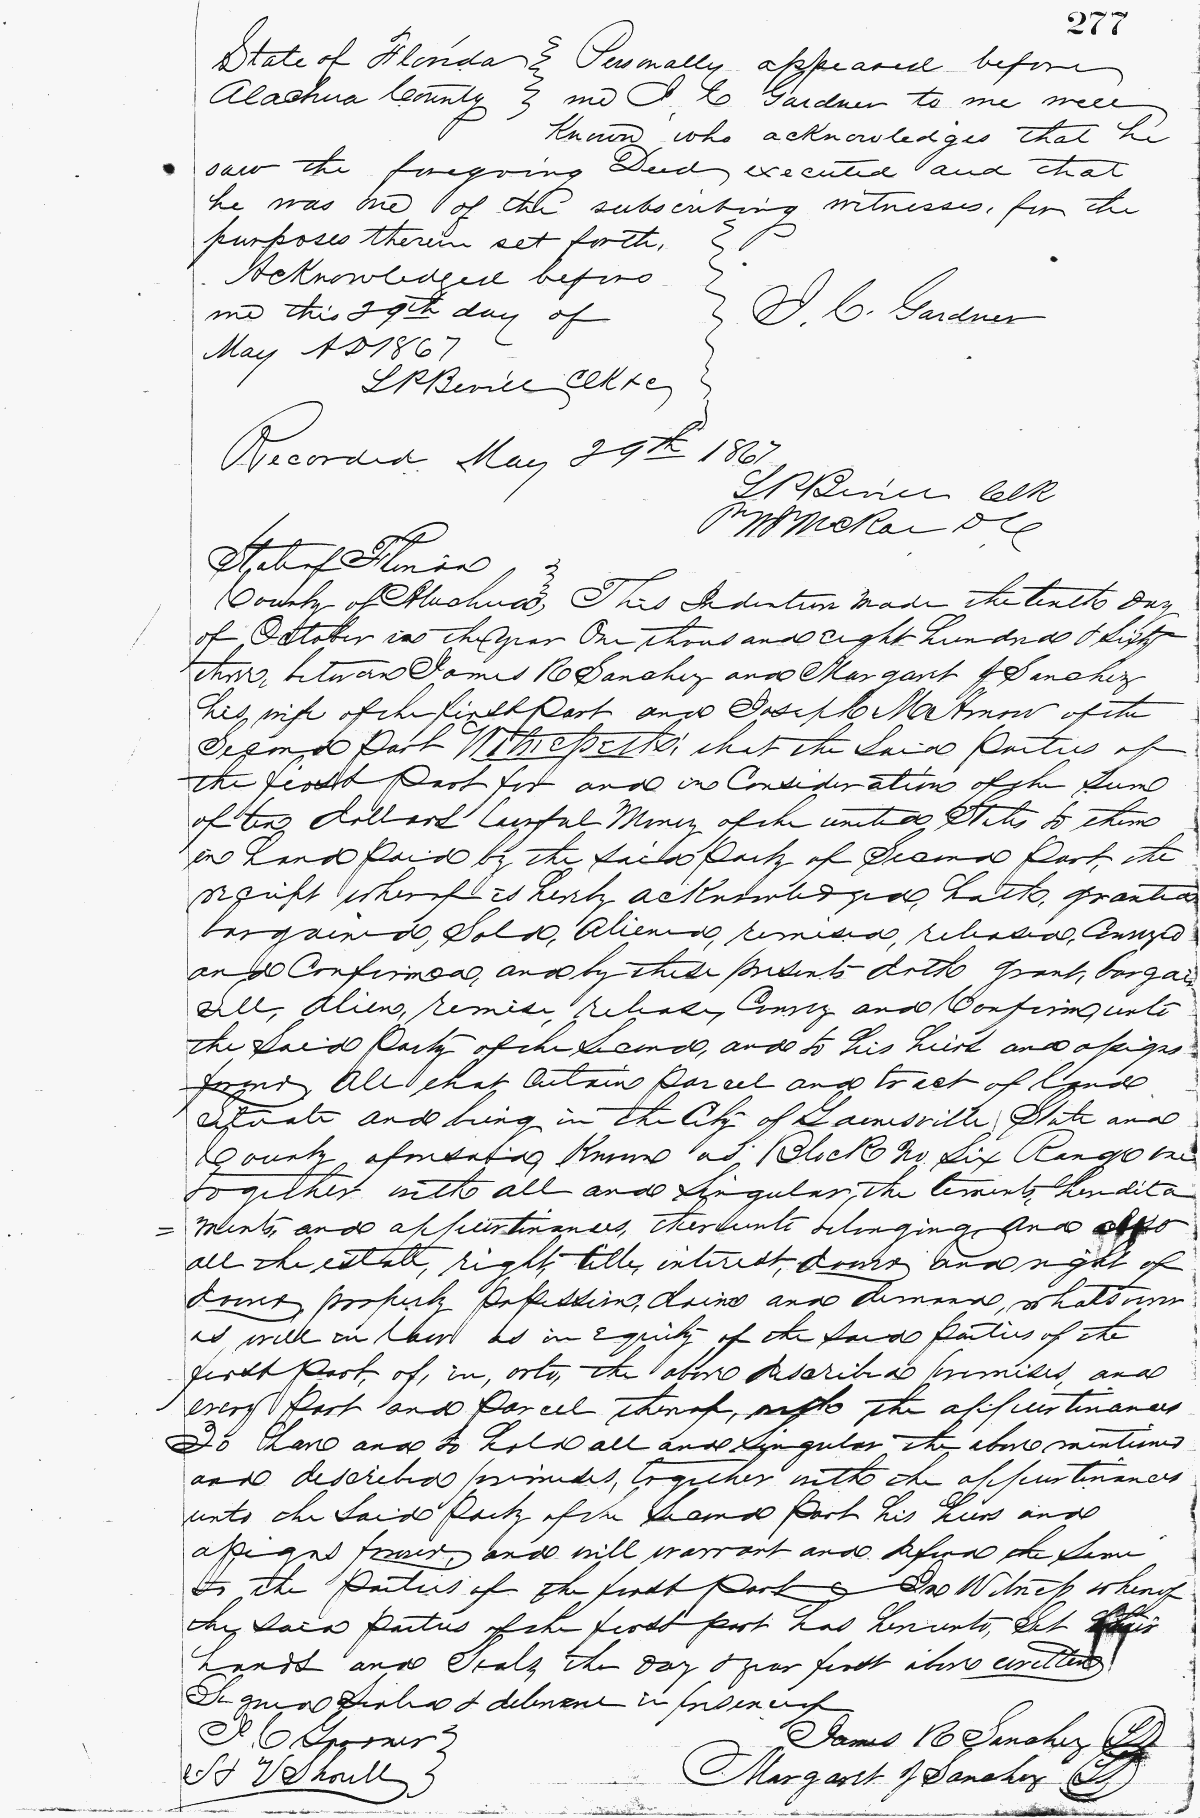 277
State of Florida } Personally appeared before
Alachua County } me I. C. Gardner to me well
Known who acknowledges that he
saw the foregoing Deed executed and that
he was one of the subscribing witnesses, for the
purposes therein set forth.
Acknowledged before
me this 29th day of
May AD 1867
I. C. Gardner
L P Bevill Clk &c
Recorded May 29th 1867
L P Bevill Clk
McRae D C
State of Florida }
County of Alachua } This Indenture made the tenth day
of October in the year One thousand eight hundred & Sixty
three, between James R Sanchez and Margaret J Sanchez
his wife of the first Part and Joseph M Arnow of the
Second Part Witnesseth; that the Said Parties of
the first Part for and in Consideration of the Sum
of ten dollars lawful Money of the united States to them
in hand Paid by the said Party of Second Part, the
receipt whereof is herby acknowledged, hath, granted
bargained, Sold, Aliened, remised, released, Conveyed
and Confirmed, and by these presents doth grant, bargain
sell, alien, remise, release, Convey and Confirm, unto
the Said Party of the Second, and to his heirs and assigns
forever, All that Certain Parcel and tract of land
situate and being in the City of Gainesville, State and
County aforesaid, Known as Block No Six Range one
together with all and singular, the tements, heredita
= ments, and appurtinances, thereunto belonging, and also
all the estate, right, title, interest, dower, and right of
dower, property Possession, claim and demand, whatsoever
as well in law as in equity of the said Parties of the
first Part, of, in, or to, the above described premises, and
every Part and Parcel thereof, with the appurtinances
To have and to hold all and singular the above mentioned
and described premises, together with the appurtinances
unto the Said Party of the Second Part his heirs and
assigns forever, and will warrant and defend the same
to the Parties of the first Part In Witness whereof
the said Parties of the first part has hereunto, Set their
hands and Seals the day & year first above written
Signed Sealed & delivered in presence of
I. C. Sporner }
H V Shoull }
James R Sanchez LS
Margaret J Sanchez LS